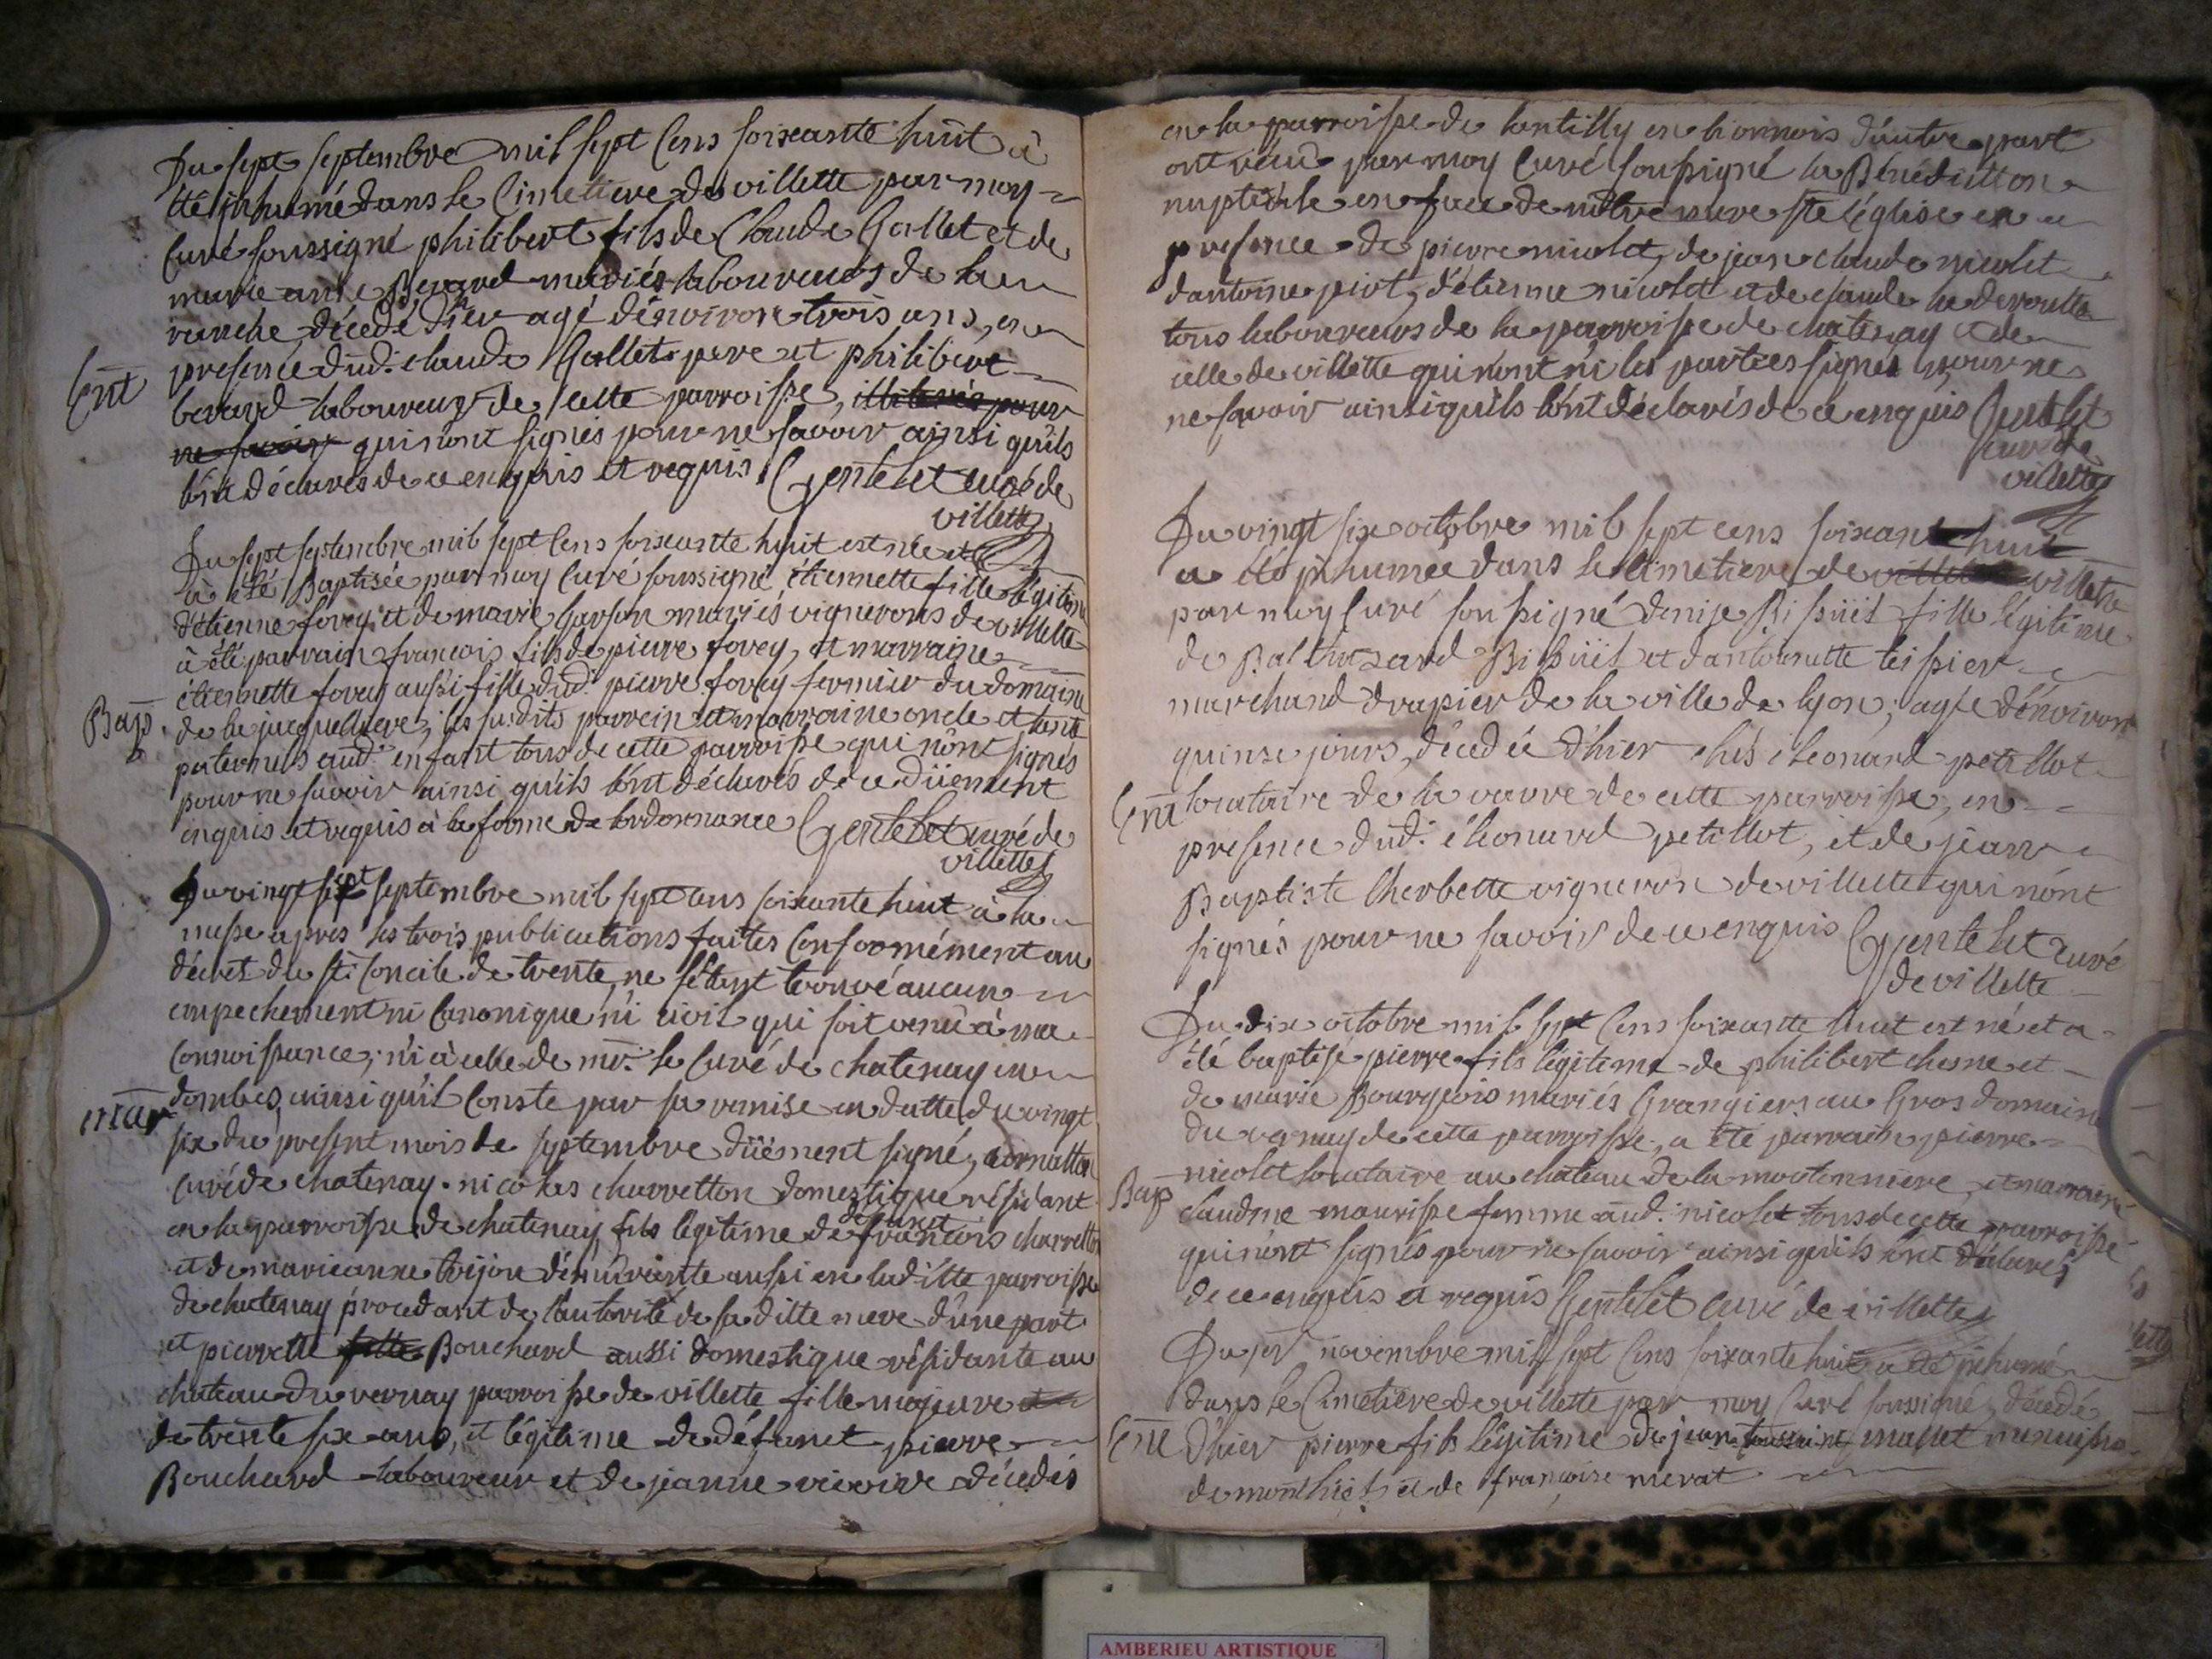 Du sept septembre mil sept cens soixante huit à
été inhumé dans le cimetiere de villette par moy
curé soussigné philibert fils de Claude Gallet et de
marie anne Berard mariés laboureurs de la
ranche décedé d'hier agé d'environ trois ans, en
presence dud. claude Gallet pere et philibert
Ent
berard laboureur de cette parroisse, illiterés pour
ne savoir qui n'ont signés pour ne savoir ainsi qu'ils
l'ont déclarés de ce enquis et requis Gentelet curé de
villette
Du sept septembre mil sept cens soixante huit est née et
à été Baptisée par moy curé soussigné étiennette fille légitime
d'étienne forey et de marie garson mariés vignerons de villette
à été parrain francois fils de pierre forey, et marraine
étiennette forey aussi fille dud. pierre forey fermier du domaine
Bap.
de la jacqueliere, les susdits parrein et marraine oncle et tante
paternels aud. enfant tous de cette parroisse qui n'ont signés
pour ne savoir ainsi qu'ils l'ont déclarés de ce düement
enquis et requis à la forme de l'ordonnance Gentelet curé de
villette
Du vingt sept septembre mil sept cens soixante huit à la
messe apres les trois publications faites conformément au
décret du st concile de trente, ne s'étant trouvé aucun
empechement ni canonique ni civil qui soit venû à ma
connoissance, ni à celle de mr. le curé de chatenay en
mar
dombes, ainsi qu'il conste par sa remise en datte du vingt
six du present mois de septembre düement signé, cornetton
curé de chatenay. nicolas charretton domestique résidant
en la parroisse de chatenay fils légitime de defunct francois charretton
et de marieanne trijou demeurante aussi en laditte parroisse
de chatenay procedant de l'autorité de sa ditte mere d'une part
et pierrette fille Bouchard aussi domestique résidante au
chateau du vernay parroisse de villette fille majeure et
de trente six ans, et légitime de défunct pierre
Bouchard laboureur et de jeanne vicoire décedés
en la parroisse de lentilly en lionnois d'autre part
ont reçû par moy curé soussigné la Bénédiction
nuptiale en face de nôtre mere ste église en
presence de pierre nicolet, de jean claude nicolet
d'antoine piot, d'étienne nicolet et de claude la deroutte
tous laboureurs de la parroisse de chatenay et de
celle de villette qui n'ont ni les parties signés pour ne
ne savoir ainsi qu'ils l'ont déclarés de ce enquis Gentelet
curé de
villette
Du vingt six octobre mil sept cens soixante huit
a été inhumée dans le cimetiere de villette villette
par moy curé soussigné denise Bissüil fille légitime
de Balthazard Bissüil et d'antoinette teissier
marchand drapier de la ville de lyon, agée d'environ
quinse jours, décedée d'hier chés éleonard petillot
Ent
locataire de la vavre de cette parroisse, en
presence dud. éleonard petillot, et de jean
Baptiste lherbette vigneron de villette qui n'ont
signés pour ne savoir de ce enquis Gentelet curé
de villette
Du dix octobre mil sept cens soixante huit est né et a
été baptisé pierre fils légitime de philibert chesne et
de marie Bourgeois mariés Grangiers au Gros domaine
du vernay de cette parroisse, a été parrain pierre
nicolet locataire au chateau de la moutonniere, et marraine
Bap
claudine maurisse femme aud. nicolet tous de cette parroisse
qui n'ont signés pour ne savoir ainsi qu'ils l'ont déclarés
de ce enquis et requis Gentelet curé de villette
Du 1er novembre mil sept cens soixante huit a été inhumé
dans le cimetiere de villette par moy curé soussigné, décedé
Ent
d'hier pierre fils légitime de jean toussaint mallet menuisier
de monthieu et de françoise merat
AMBERIEU ARTISTIQUE